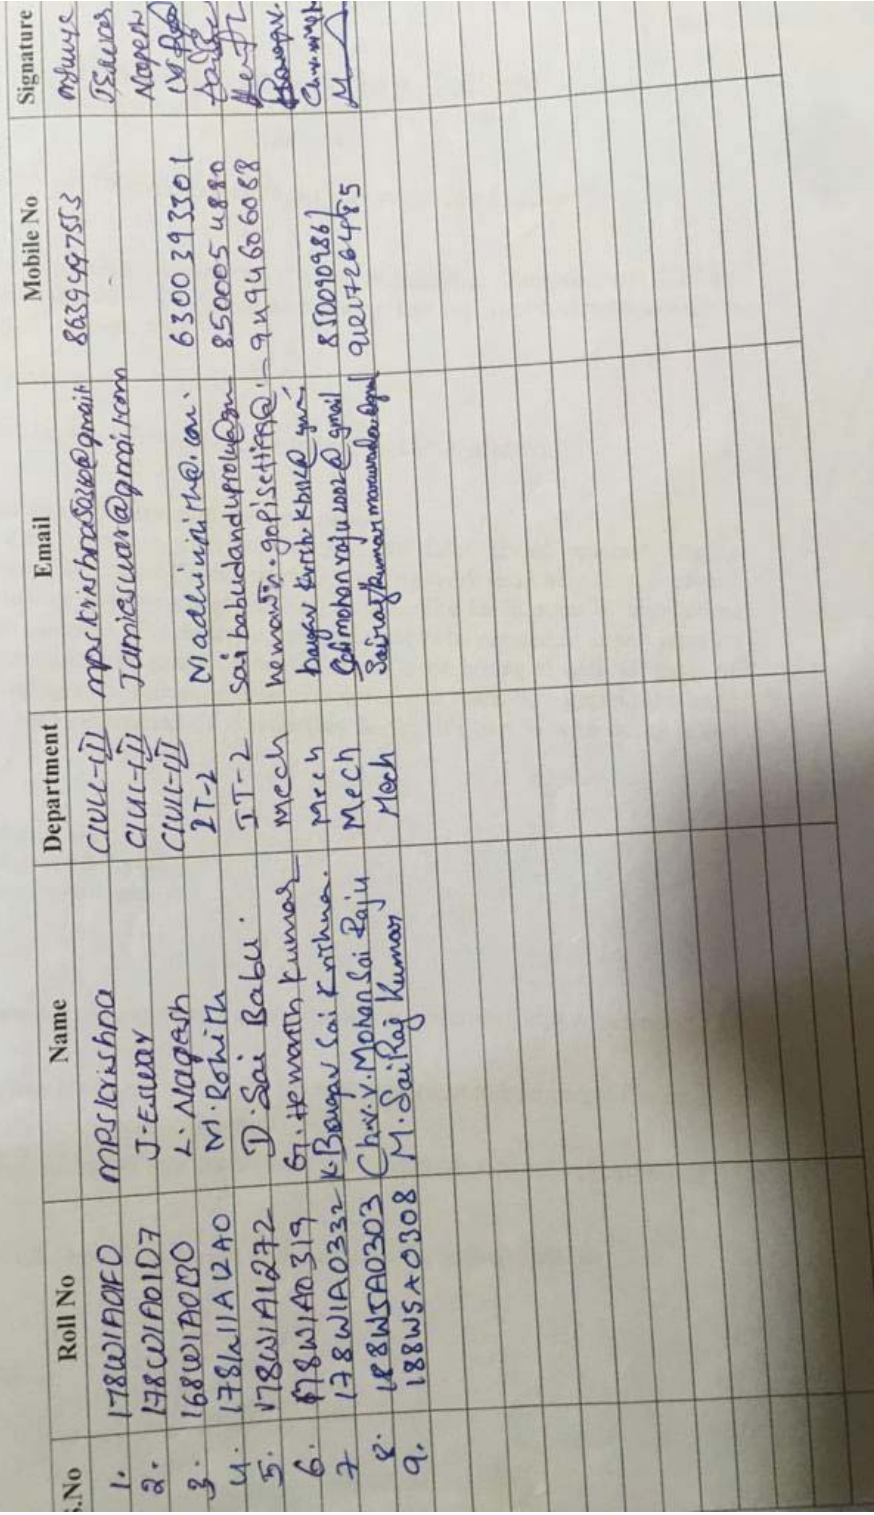 S.No Roll No Name Department Email Mobile No Signature
1. 178W1A01F0 MPSKrishna CIVIL-III mpskrishna5020@gmail 8639497553
2. 178W1A01D7 J-Eswar CIVIL-III Jamieswar@gmail.com JEswar
3. 168W1A0130 L. Nagesh CIVIL-III Nagesh
4. 178W1A12A0 M. Rohith IT-2 Madhinirith@.com. 6300393301
5. 178W1A1272 D. Sai Babu. IT-2 saibabudanduprolu@gm 8500054880
6. 178W1A0319 G. Hemanth kumar Mech hemanth.gopisetti99@ 9494606068
7 178W1A0332 K. Bargav Sai Krithna. Mech bargav krithi kbsk@gmai 8500909861
8. 188W5A0303 Ch.v.v. Mohan Sai Raju Mech Saimohanraju2002@gmail 9121726485
9. 188W5A0308 M. SaiRaj Kumar Mech